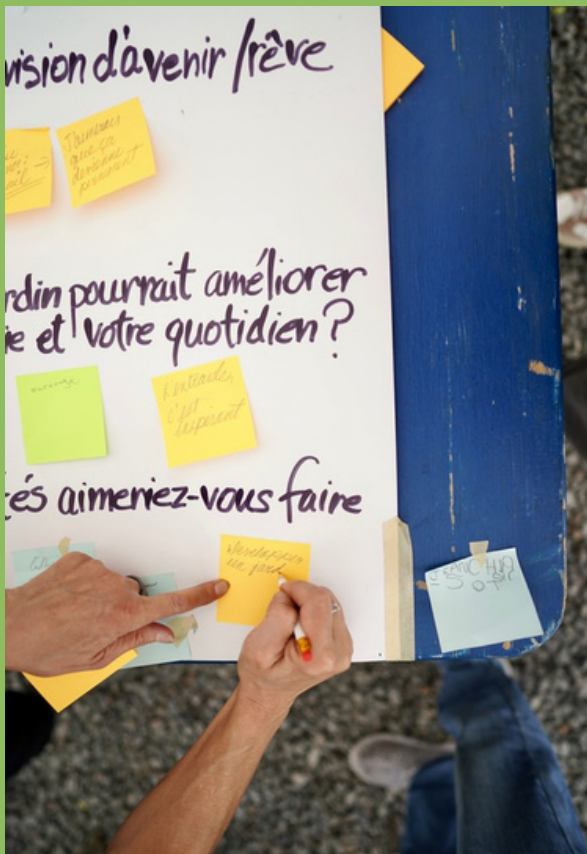 vision d'avenir / rêve
J'aimerais
que ça
devienne
permanent
rdin pourrait améliorer
ie et votre quotidien ?
c'est
inspirant
tés aimeriez-vous faire
Développer
un jard